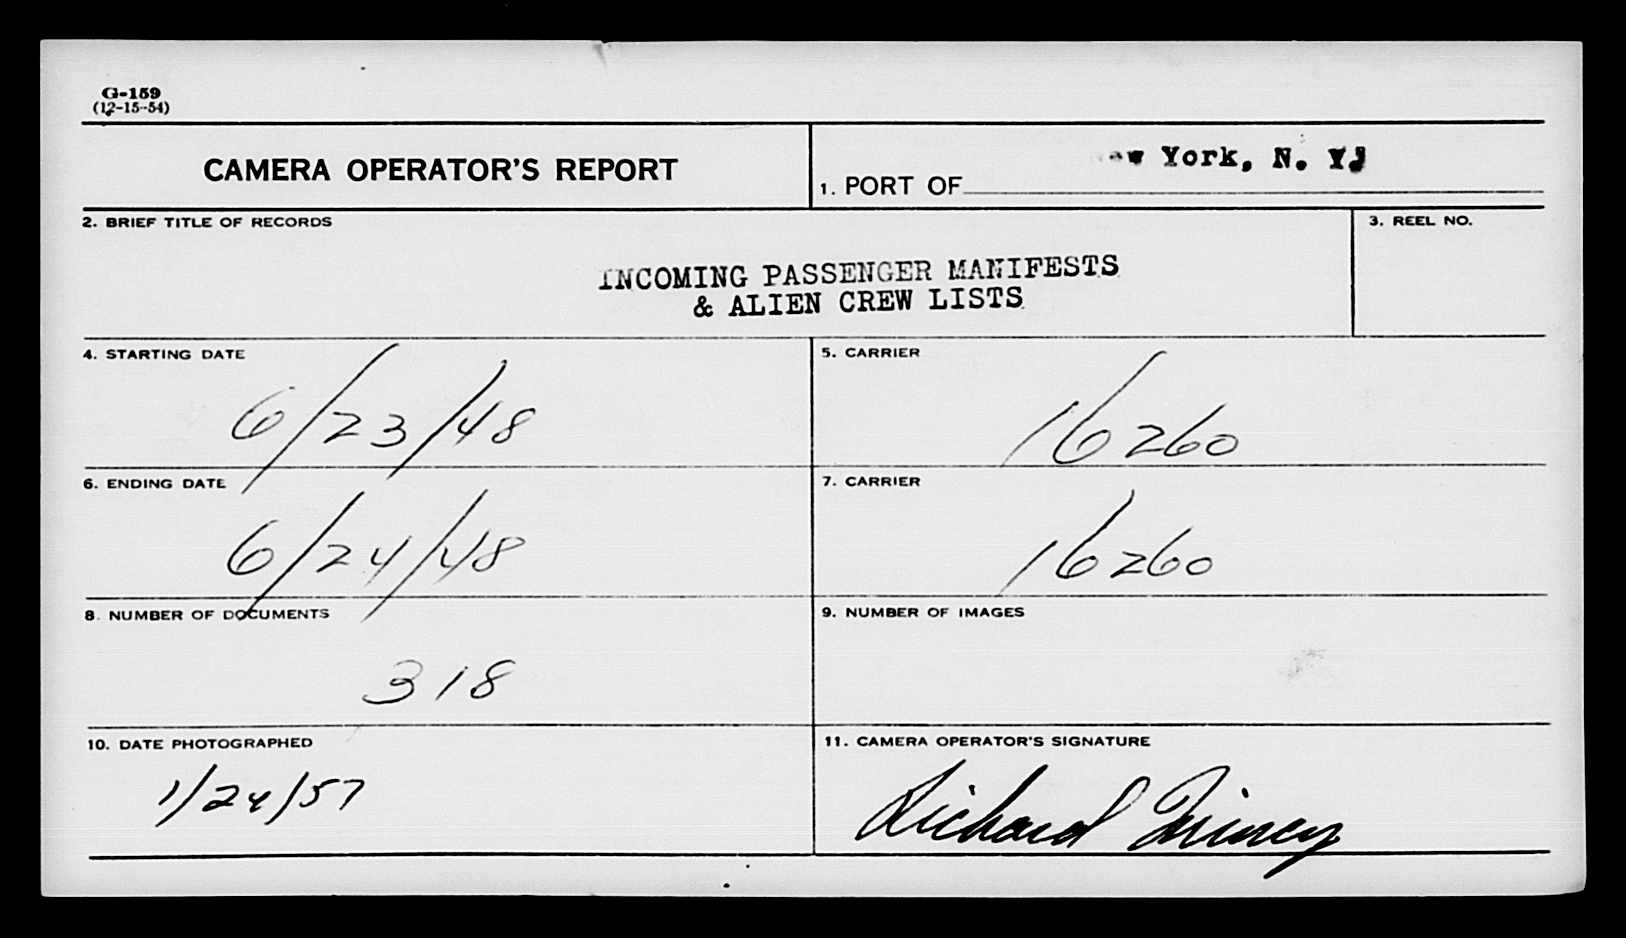 G-159
(12-15-54)
CAMERA OPERATOR'S REPORT
1. PORT OF New York, N. Y.
2. BRIEF TITLE OF RECORDS
3. REEL NO.
INCOMING PASSENGER MANIFESTS
& ALIEN CREW LISTS
4. STARTING DATE
6/23/48
5. CARRIER
16260
6. ENDING DATE
6/24/48
7. CARRIER
16260
8. NUMBER OF DOCUMENTS
318
9. NUMBER OF IMAGES
10. DATE PHOTOGRAPHED
1/24/57
11. CAMERA OPERATOR'S SIGNATURE
Richard